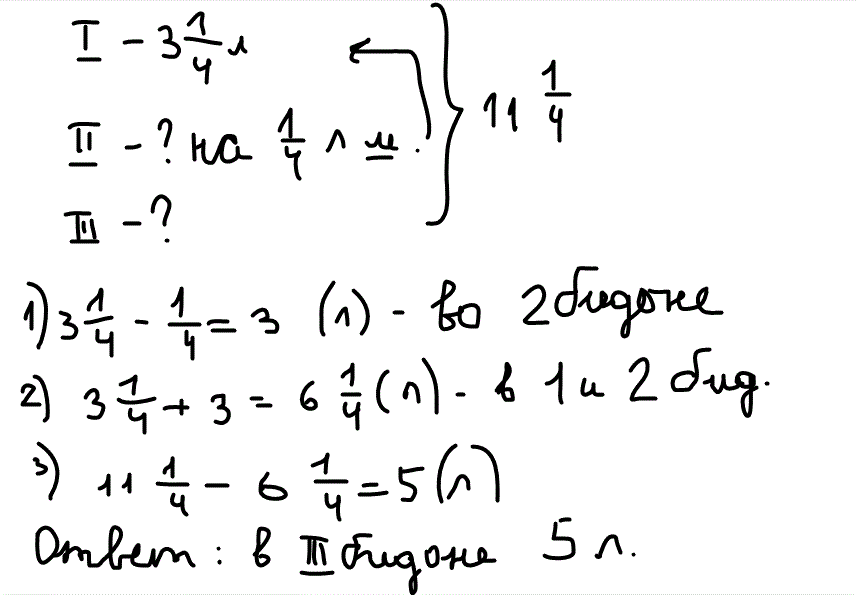 I – 3 1/4 л
II – ? на 1/4 л м.
11 1/4
III – ?
1) 3 1/4 - 1/4 = 3 (л) - во 2 бидоне
2) 3 1/4 + 3 = 6 1/4 (л) - в 1 и 2 бид.
3) 11 1/4 - 6 1/4 = 5 (л)
Ответ: в III бидоне 5 л.